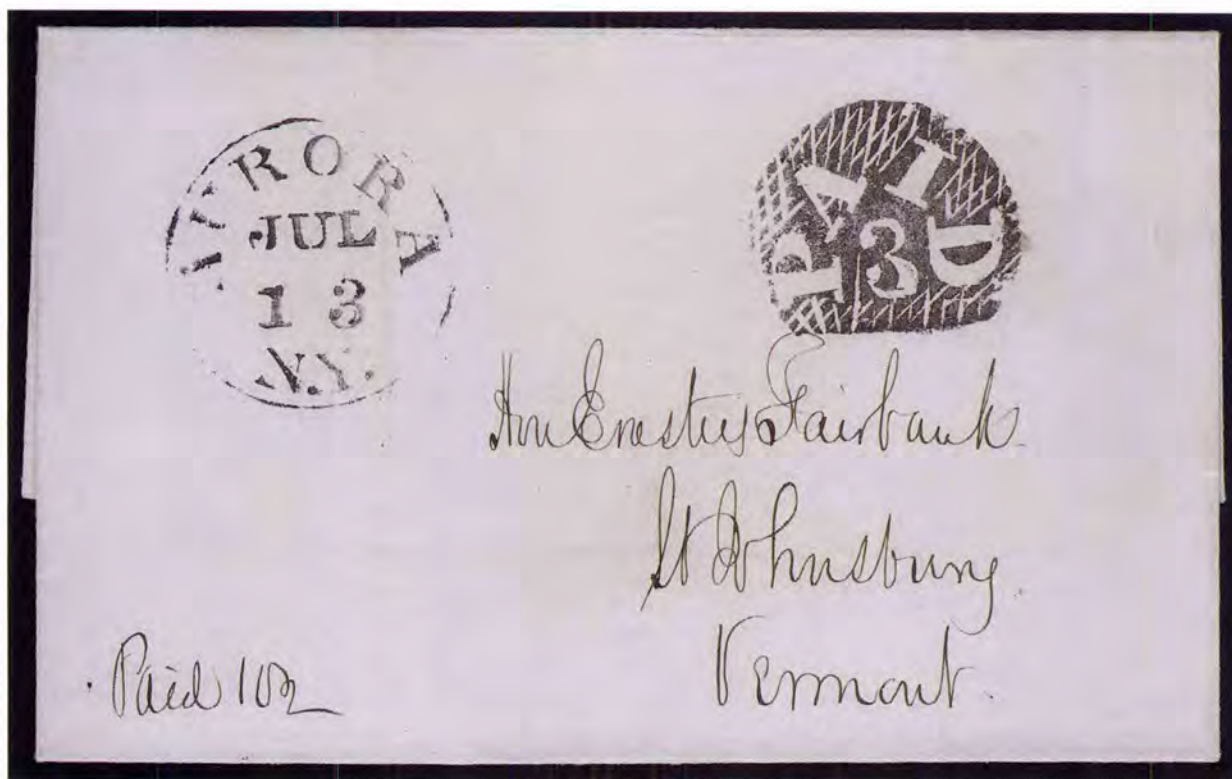 AURORA
JUL
1 3
N.Y.
PAID
3
Hon Erastus Fairbank
St Johnsbury
Vermont.
Paid